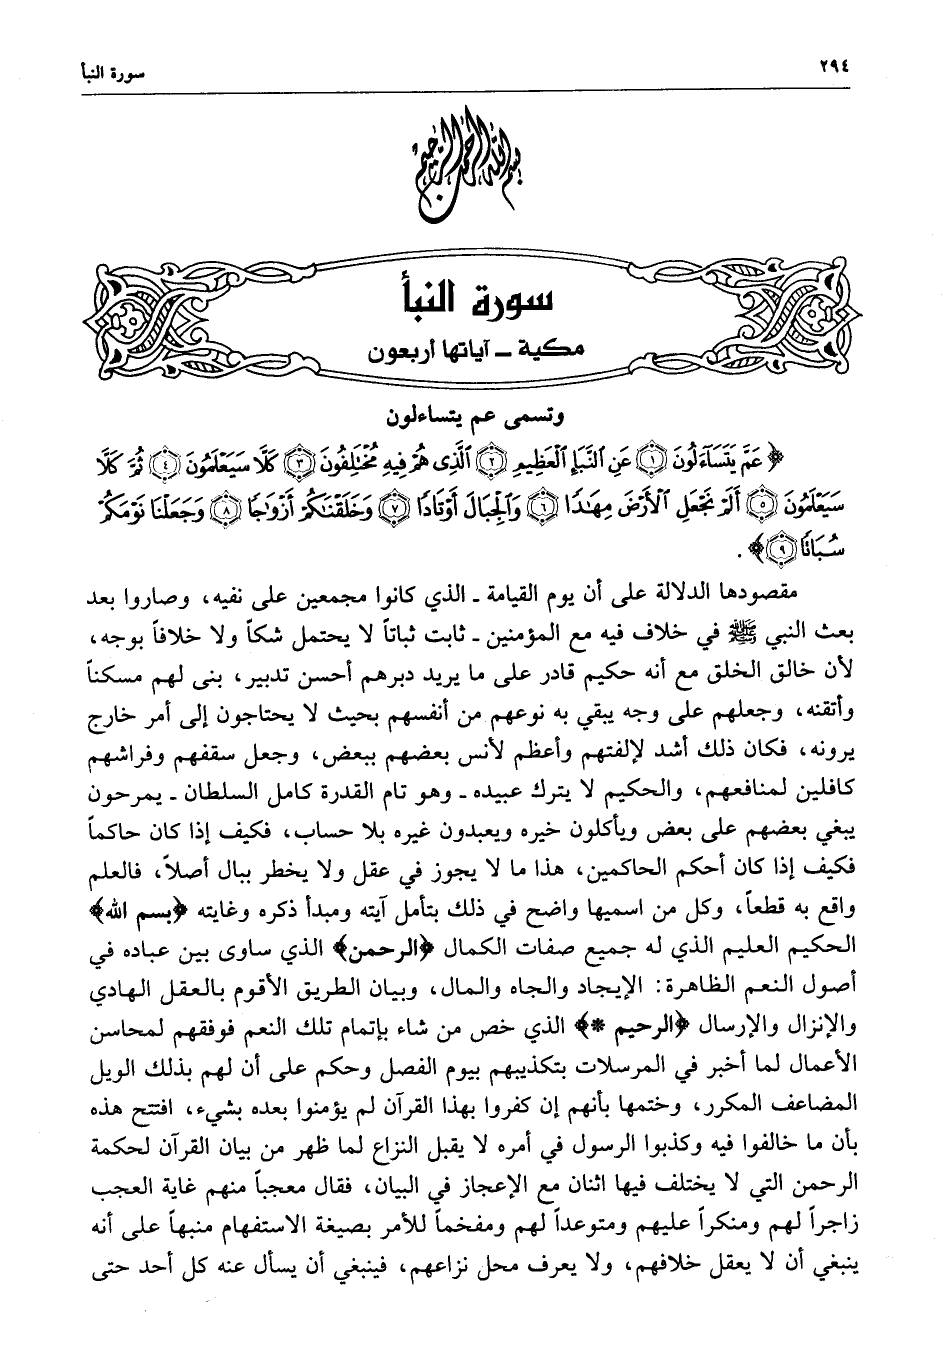 ٢٩٤
سورة النبأ
بسم الله الرحمن الرحيم
سورة النبأ
مكية ـ آياتها أربعون
وتسمى عم يتساءلون
﴿عَمَّ يَتَسَآءَلُونَ ﴿١﴾ عَنِ ٱلنَّبَإِ ٱلْعَظِيمِ ﴿٢﴾ ٱلَّذِى هُمْ فِيهِ مُخْتَلِفُونَ ﴿٣﴾ كَلَّا سَيَعْلَمُونَ ﴿٤﴾ ثُمَّ كَلَّا
سَيَعْلَمُونَ ﴿٥﴾ أَلَمْ نَجْعَلِ ٱلْأَرْضَ مِهَٰدًا ﴿٦﴾ وَٱلْجِبَالَ أَوْتَادًا ﴿٧﴾ وَخَلَقْنَٰكُمْ أَزْوَٰجًا ﴿٨﴾ وَجَعَلْنَا نَوْمَكُمْ
سُبَاتًا ﴿٩﴾﴾ .
مقصودها الدلالة على أن يوم القيامة ـ الذي كانوا مجمعين على نفيه، وصاروا بعد
بعث النبي ﷺ في خلاف فيه مع المؤمنين ـ ثابت ثباتاً لا يحتمل شكاً ولا خلافاً بوجه،
لأن خالق الخلق مع أنه حكيم قادر على ما يريد دبرهم أحسن تدبير، بنى لهم مسكناً
وأتقنه، وجعلهم على وجه يبقي به نوعهم من أنفسهم بحيث لا يحتاجون إلى أمر خارج
يرونه، فكان ذلك أشد لإلفتهم وأعظم لأنس بعضهم ببعض، وجعل سقفهم وفراشهم
كافلين لمنافعهم، والحكيم لا يترك عبيده ـ وهو تام القدرة كامل السلطان ـ يمرحون
يبغي بعضهم على بعض ويأكلون خيره ويعبدون غيره بلا حساب، فكيف إذا كان حاكماً
فكيف إذا كان أحكم الحاكمين، هذا ما لا يجوز في عقل ولا يخطر ببال أصلاً، فالعلم
واقع به قطعاً، وكل من اسميها واضح في ذلك بتأمل آيته ومبدأ ذكره وغايته ﴿بسم الله﴾
الحكيم العليم الذي له جميع صفات الكمال ﴿الرحمن﴾ الذي ساوى بين عباده في
أصول النعم الظاهرة: الإيجاد والجاه والمال، وبيان الطريق الأقوم بالعقل الهادي
والإنزال والإرسال ﴿الرحيم *﴾ الذي خص من شاء بإتمام تلك النعم فوفقهم لمحاسن
الأعمال لما أخبر في المرسلات بتكذيبهم بيوم الفصل وحكم على أن لهم بذلك الويل
المضاعف المكرر، وختمها بأنهم إن كفروا بهذا القرآن لم يؤمنوا بعده بشيء، افتتح هذه
بأن ما خالفوا فيه وكذبوا الرسول في أمره لا يقبل النزاع لما ظهر من بيان القرآن لحكمة
الرحمن التي لا يختلف فيها اثنان مع الإعجاز في البيان، فقال معجباً منهم غاية العجب
زاجراً لهم ومنكراً عليهم ومتوعداً لهم ومفخماً للأمر بصيغة الاستفهام منبهاً على أنه
ينبغي أن لا يعقل خلافهم، ولا يعرف محل نزاعهم، فينبغي أن يسأل عنه كل أحد حتى